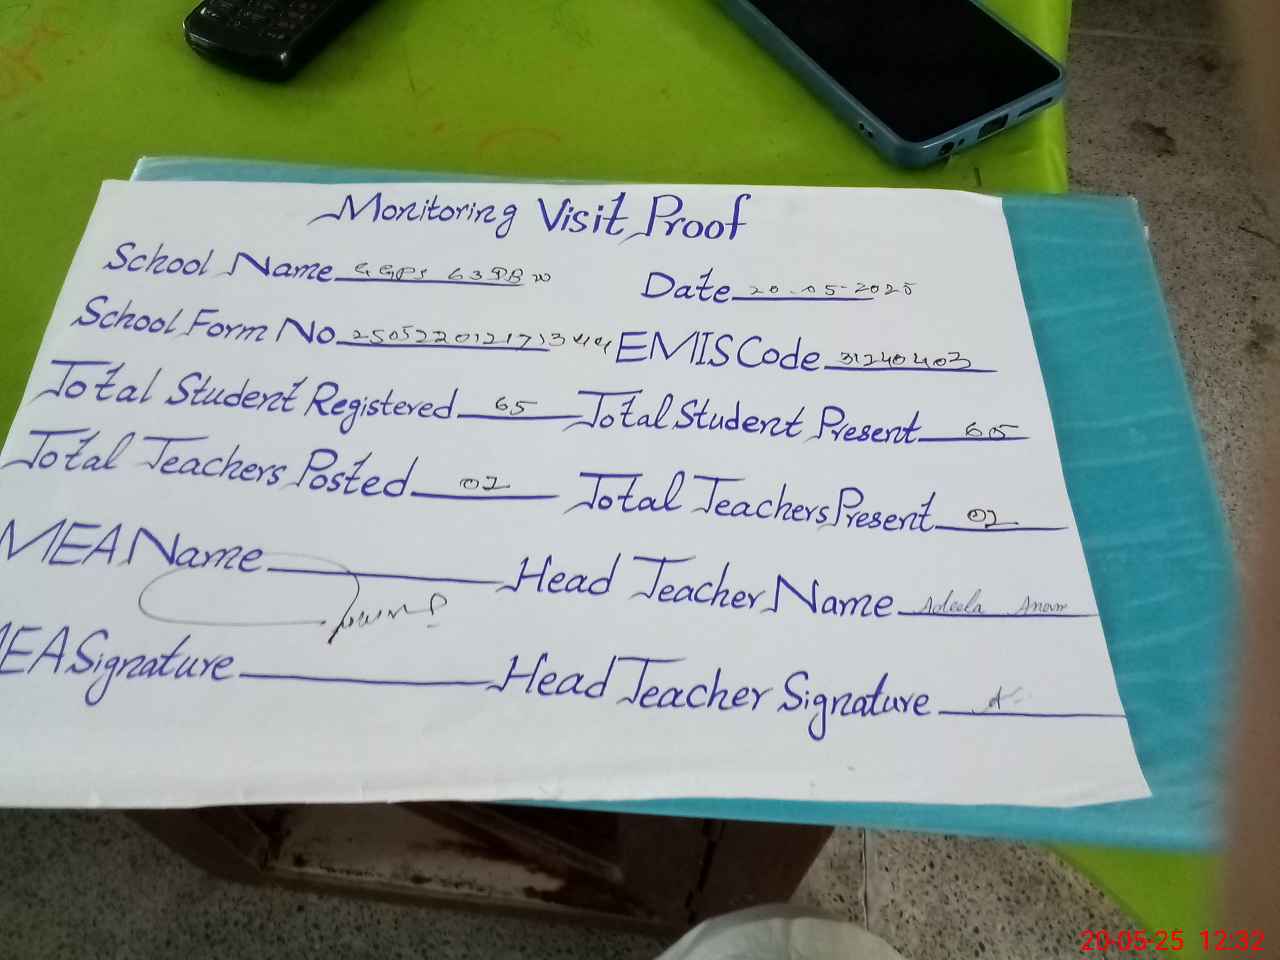 Monitoring Visit Proof
School Name GGPS 63DBN Date 20-05-2025
School Form No 25052201217344 EMIS Code 31240403
Total Student Registered 65 Total Student Present 65
Total Teachers Posted 02 Total Teachers Present 02
MEA Name Head Teacher Name Adeela Anam
MEA Signature Head Teacher Signature
20-05-25 12:32